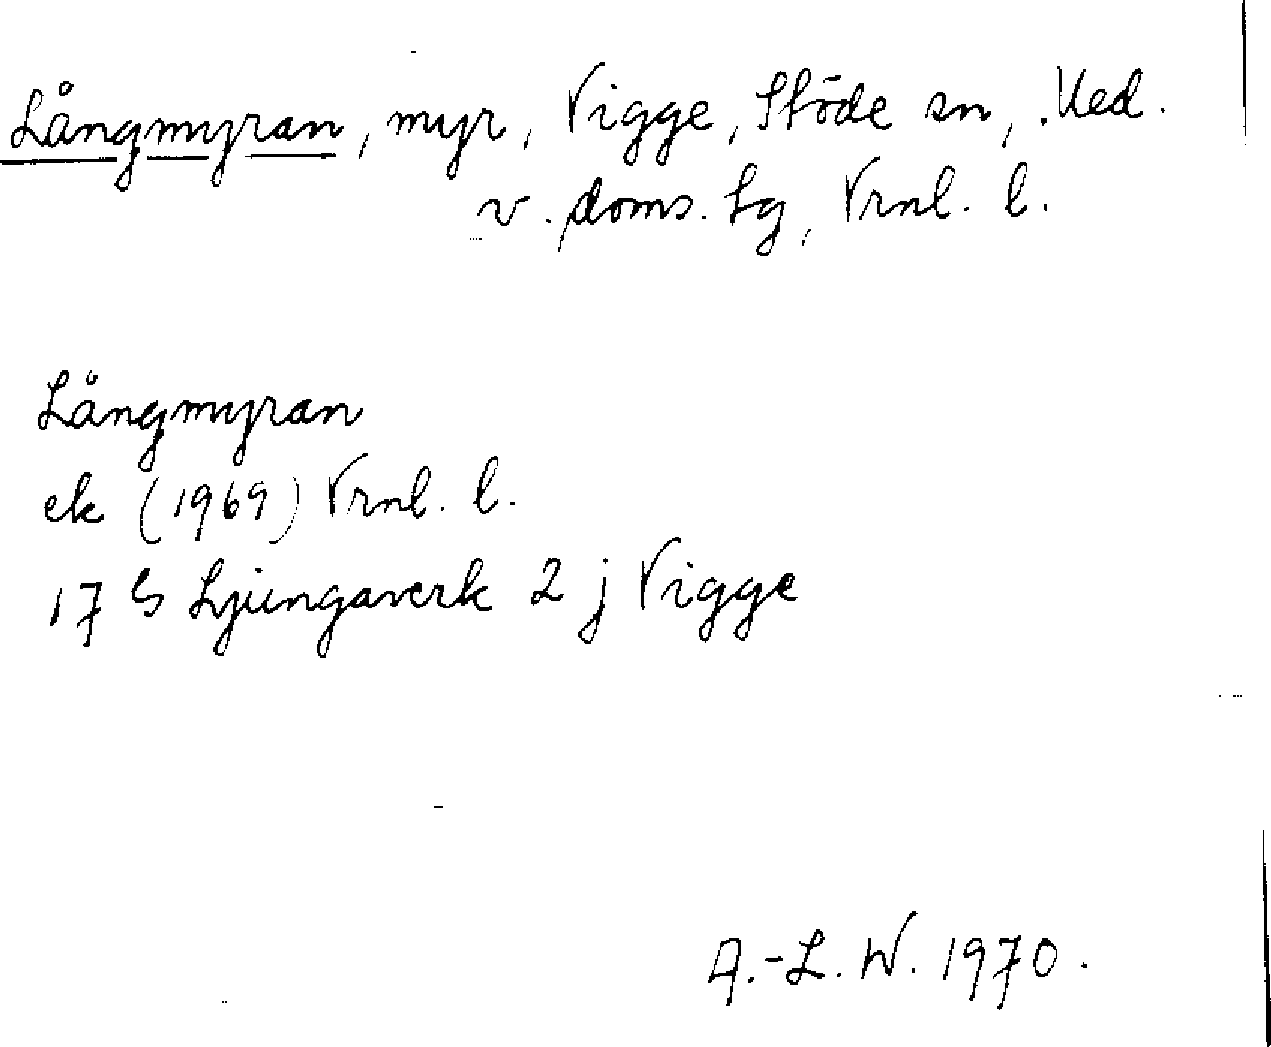 Långmyran, myr, Vigge, Stöde sn, Med.
v. doms. lg, Vrnl. l.
Långmyran
ek (1969) Vrnl. l.
17 G Ljungaverk 2 j Vigge
A.-L. W. 1970.